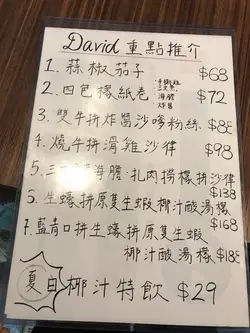 David 重點推介
1. 蒜椒茄子 $68
2. 四色檬紙卷 $72
3. 雙牛拼炸醬沙嗲粉絲 $88
4. 燒牛拼滑雞沙律 $98
5. 三 海膽·扎肉撈檬拼沙律 $138
5. 生蠔拼原隻生蝦椰汁酸湯檬 $168
7. 藍青口拼生蠔拼原隻生蝦
椰汁酸湯檬 $188
夏日椰汁特飲 $29